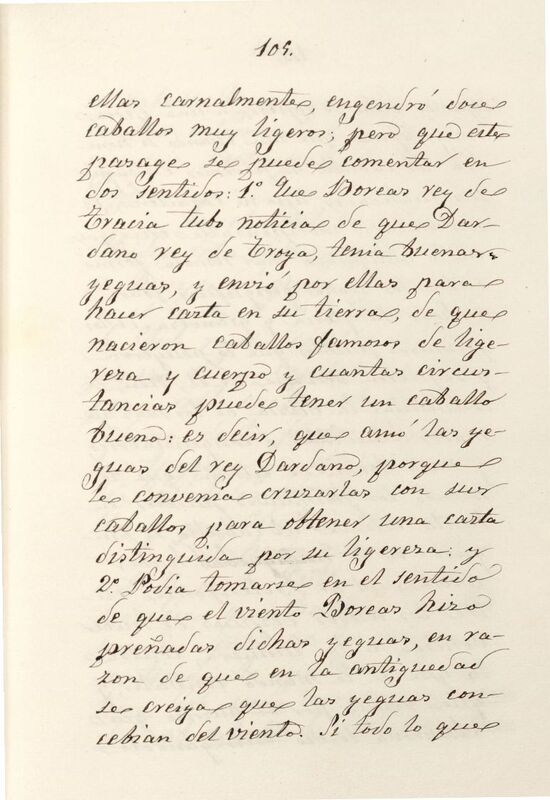 105.
ellas carnalmente, engendró doce
caballos muy ligeros; pero que este
pasage se puede comentar en
dos sentidos: 1.º Que Boreas rey de
Tracia tubo noticia de que Dar-
dano rey de Troya, tenia buenas
yeguas, y envió por ellas para
hacer casta en su tierra, de que
nacieron caballos famosos de lige-
reza y cuerpo y cuantas circus-
tancias puede tener un caballo
bueno: es decir, que amó las ye-
guas del rey Dardano, porque
le convenia cruzarlas con sus
caballos para obtener una casta
distinguida por su ligereza; y
2.º Podia tomarse en el sentido
de que el viento Boreas hizo
preñadas dichas yeguas, en ra-
zon de que en la antiguedad
se creiga que las yeguas con-
cebian del viento. Si todo lo que